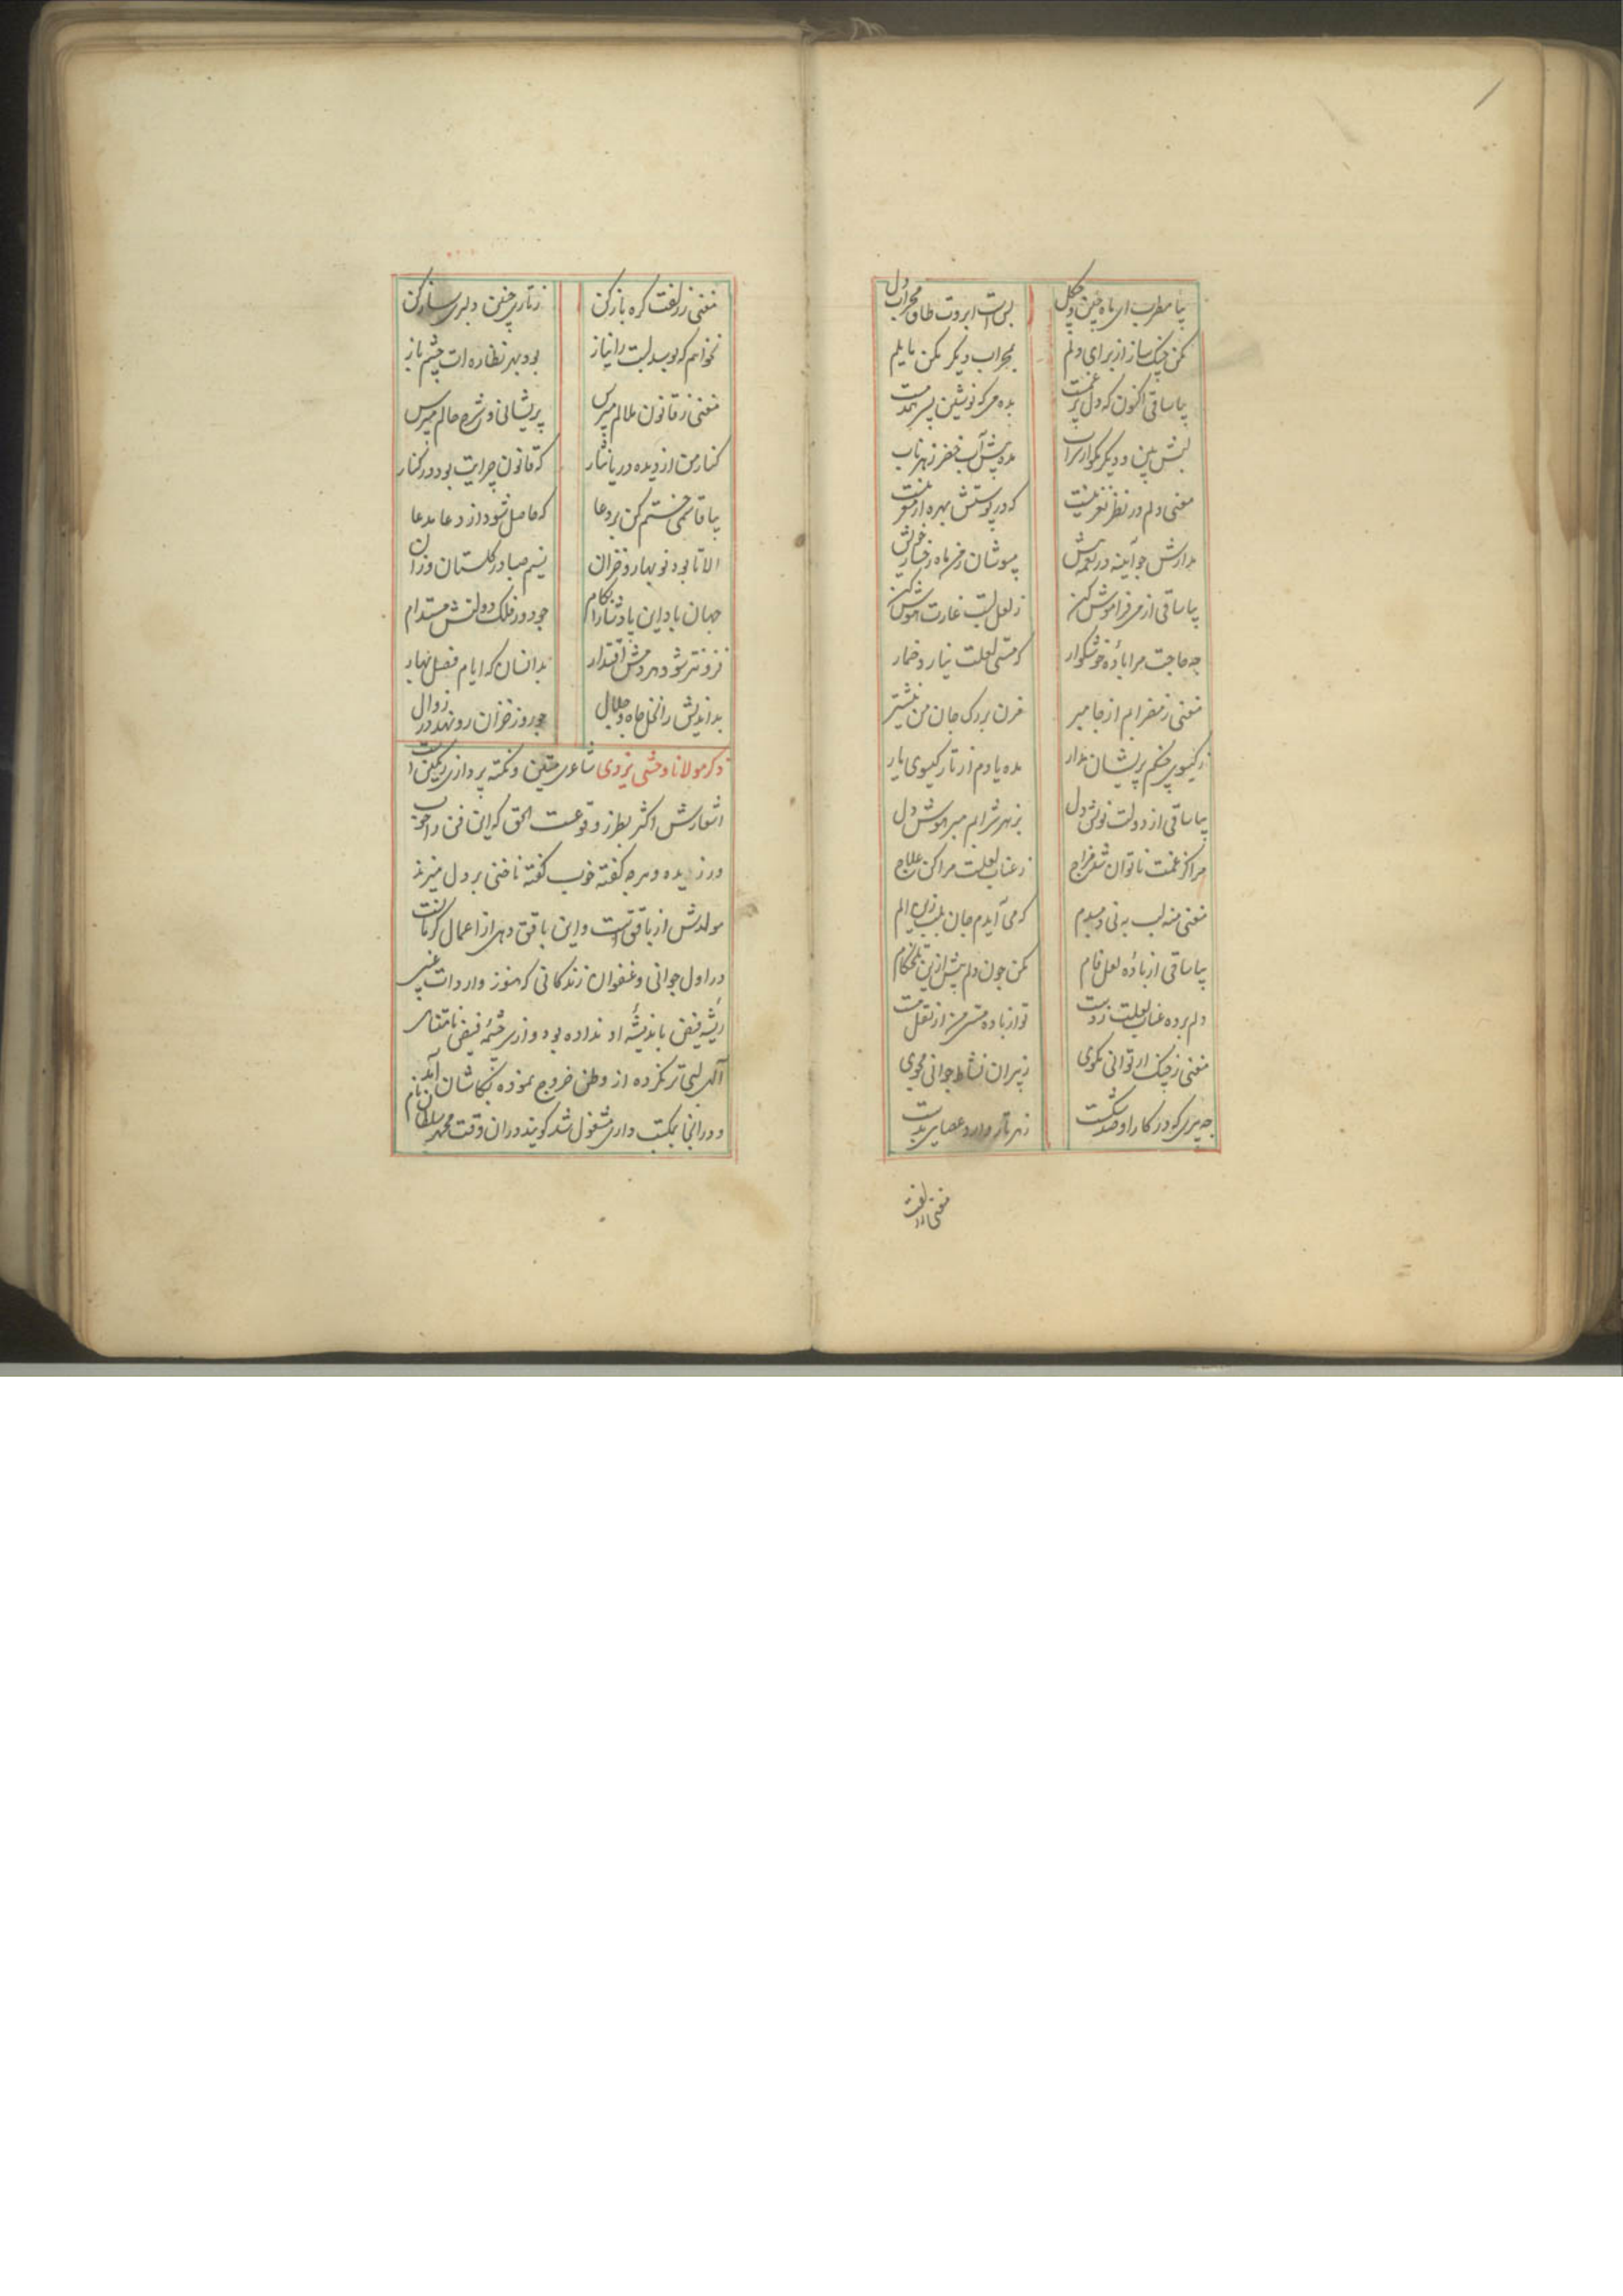 بیا مطرب ای ماه چین و چگل
بس است ابروت طاق محراب دل
مکن چنگ ساز از برای دلم
بمحراب دیگر مکن مایلم
بیا ساقی اکنون که دل پر غمست
بده می که نوشین
لبش بین و دیگر مگو از سراب
منه پیش آب خضر زهر ناب
مغنی دلم در نظر نغز نیست
که در پوستش بهره از مغز نیست
مدارش جو آیینه در
مپوشان رخ ماه رخسار خویش
بیا ساقی از می فراموش کن
ز لعل لبت غارت هوش کن
چه حاجت مرا بادهٔ خوشگوار
که مستی لعلت نیارد خمار
مغنی ز مضرابم از جا مبر
مزن بر رک جان من نیشتر
ز کیسوی چنگم پریشان مدار
مده یادم از تار کیسوی یار
بیا ساقی از دولت نوش دل
بزهر شرابم مبر هوش دل
مرا کز غمت ناتوان شد مزاج
ز عناب لعلت مرا کن علاج
مغنی منه لب به نی دمبدم
که می آیدم جان بلب زین الم
بیا ساقی از بادهٔ لعل فام
مکن جون دلم بیش ازین تلخکام
دلم برده عناب لعلت ز دست
تو از باده مستی من از نقل مست
مغنی ز چنک ار توانی مکوی
ز پیران نشاط جوانی مجوی
جه پیری که در کار او صد شکست
ز هر تار دارد عصایی بدست
مغنی ز زلفت
مغنی ز زلفت کره باز کن
ز تاری چنین دلبری ساز کن
نخواهم که بوسد لبت را نیاز
بود بهر نظاره ات چشم باز
مغنی ز قانون ملالم مپرس
پریشانی و شرح حالم مپرس
کنار من از دیده دریا نثار
که قانون چرایت بود در کنار
بیا قاسمی ختم کن بر دعا
که حاصل شود از دعا مدعا
الا تا بود نوبهار و خزان
نسیم صبا در کلستان وزان
جهان باد این پادشا را بکام
جو دور فلک دولتش مستدام
فزونتر شود هر دمش اقتدار
بدانسان که ایام فصل بهار
بداندیش را نخل جاه و جلال
جو روز خزان رو نهد در زوال
ذکر مولانا وحشی یزدی شاعری متین و نکته پردازی رنگین است
اشعارش اکثر بطرز وقوعست الحق که این فن را خوب
ورزیده و هرجه کفته خوب کفته ناخنی بر دل میزند
مولدش از بافق است و این بافق دهی از اعمال کرمانست
در اول جوانی و عنفوان زندکانی که هنوز واردات غیبی
ریشه فیض باندیشهٔ او نداده بود و ازین چشمهٔ فیض نامتناهی
آلهی لبی تر نکرده از وطن خروج نموده بکاشان آمد
و در آنجا بمکتب داری مشغول شد کویند در آن وقت محمد سلطان نام